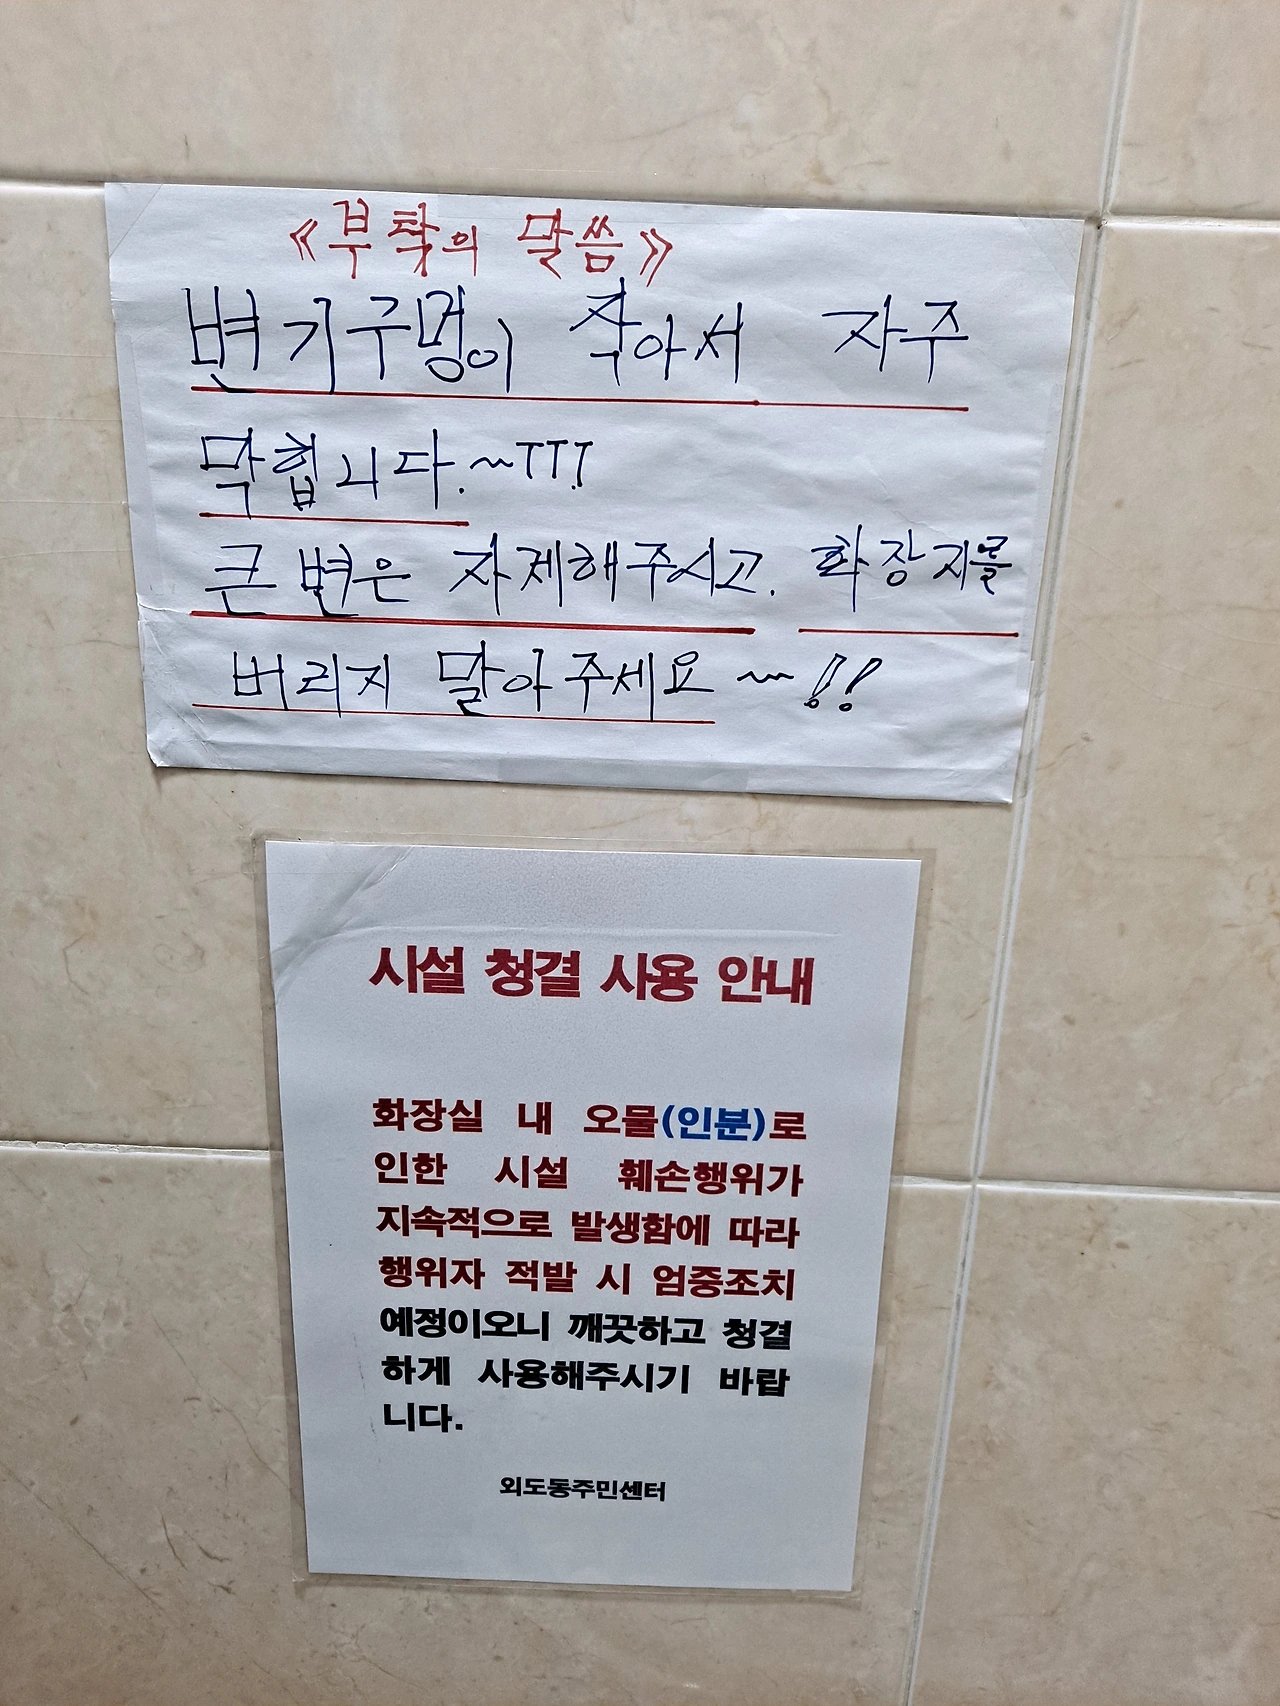 《부탁의 말씀》
변기구멍이 작아서 자주
막힙니다.~TTT
큰변은 자제해주시고. 화장지를
버리지 말아주세요~!!
시설 청결 사용 안내
화장실 내 오물(인분)로
인한 시설 훼손행위가
지속적으로 발생함에 따라
행위자 적발 시 엄중조치
예정이오니 깨끗하고 청결
하게 사용해주시기 바랍
니다.
외도동주민센터